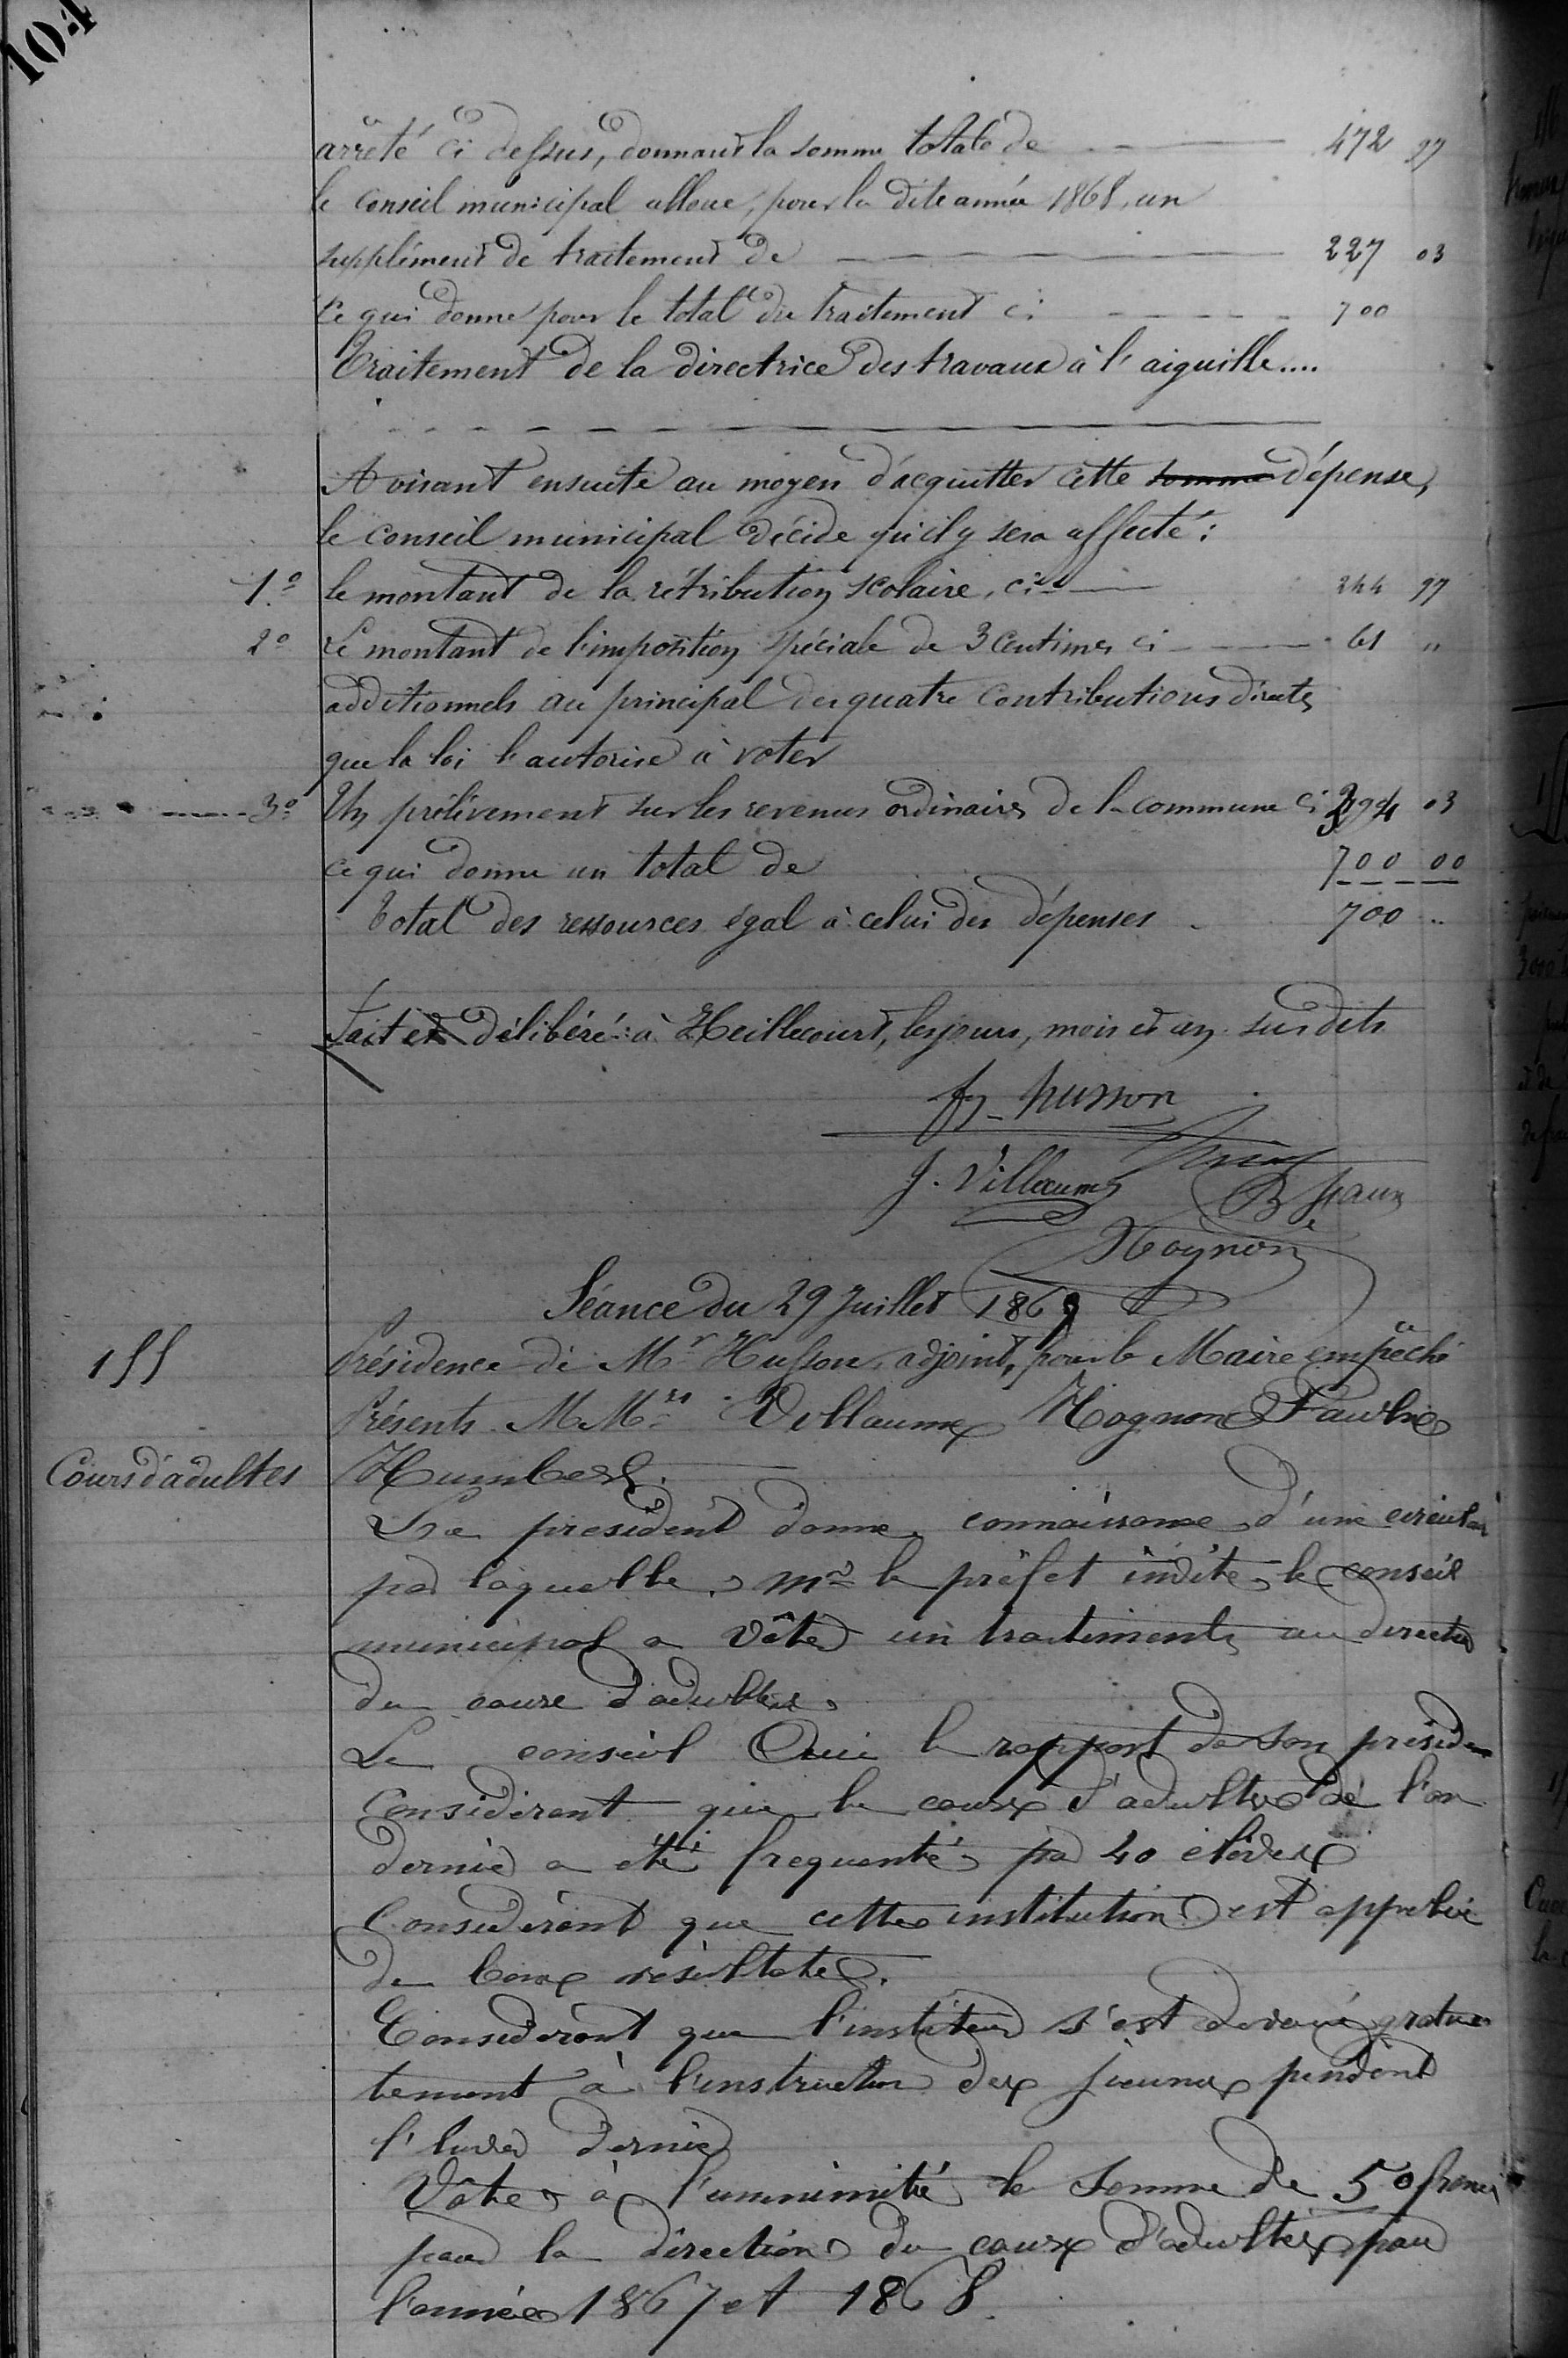 104
arrêté ci dessus, donnant la somme totale de 472 97
le conseil municipal alloue, pour la dite année 1868, un
supplément de traitement de 227 03
Ce qui donne pour le total du traitement ci 700
Traitement de la directrice des travaux à l'aiguille....
Avisant ensuite au moyen d'acquitter cette somme dépense,
le conseil municipal décide qu'il y sera affecté :
1.º le montant de la rétribution scolaire, ci 244 97
2º Le montant de l'imposition spéciale de 3 Centimes ci 61 "
additionnels au principal des quatre contributions directes
que la loi l'autorise à voter
3º Un prélèvement sur les revenus ordinaires de la commune ci 394 03
ce qui donne un total de 700 00
Total des ressources égal à celui des dépenses 700 ..
Fait et délibéré à Heillecourt, les jours, mois et an susdits
husson
J. Villaume
Hognon
Séance du 29 Juillet 1867
155 Présidence de Mr Husson, adjoint, pour le Maire empêché
Présents MMrs Villaume Hognon
Cours d'adultes Humbert.
Le president donne connaissance d'une circulai
par laquelle mr le préfet invite le conseil
municipal a vôter un traitements au directeur
du cours d'adultes.
Le conseil Ouï le rapport de son préside
Considerant que le cours d'adultes de l'an
dernier a été frequenté par 40 elèves
Considerant que cette institution est appelée
de bons résultats.
Considerant que l'instituteur s'est dévoué gratui
tement à l'instruction des jeunes pendant
l'hiver dernier
Vôte à l'unnimité la Somme de 50 francs
pour la direction du cours d'adultes pour
l'année 1867 et 1868.